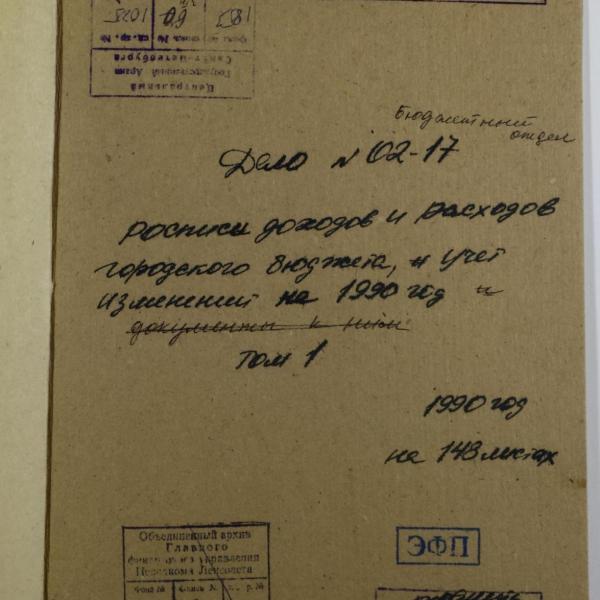 Центральный
Государственный Архив
Санкт-Петербурга
Бюджетный
отдел
Дело № 02-17
росписи доходов и расходов
городского бюджета, и учет
изменений на 1990 год и
документы к ним
том 1
1990 год
на 148 листах
Объединенный архив
Главного
финансового управления
Исполкома Ленсовета
ЭФП